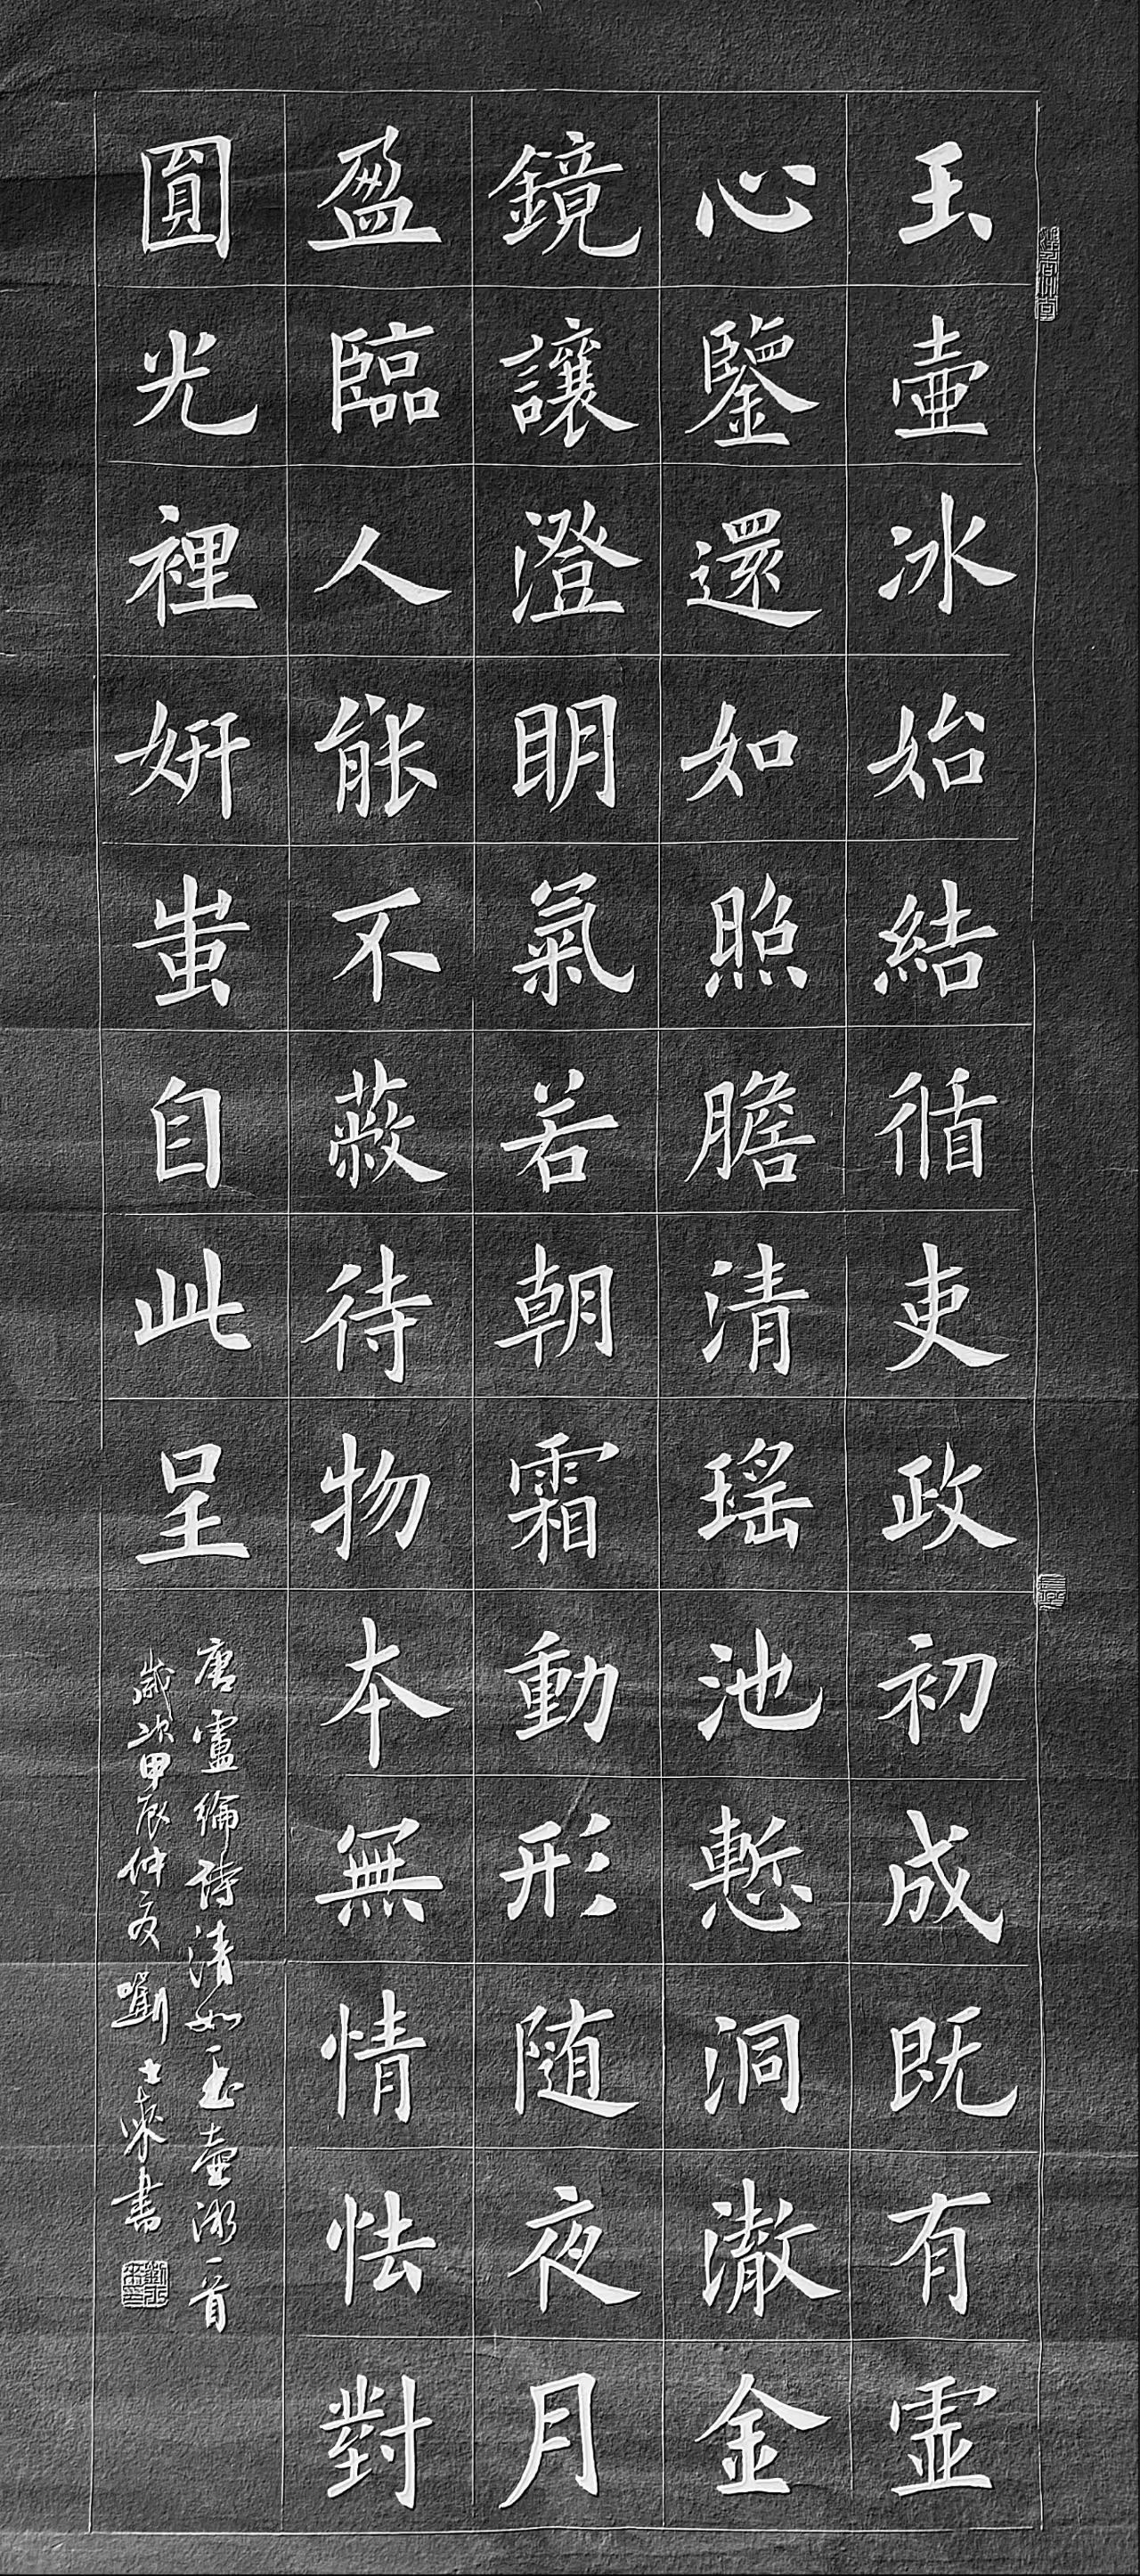 玉壺冰始結循吏政初成既有虛
心鑒還如照膽清瑶池慙洞澈金
鏡讓澄明氣若朝霜動形随夜月
盈臨人能不蔽待物本無情怯對
圓光裡妍蚩自此呈
唐盧綸詩清如玉壺冰一首
歲次甲辰仲夏劉士書